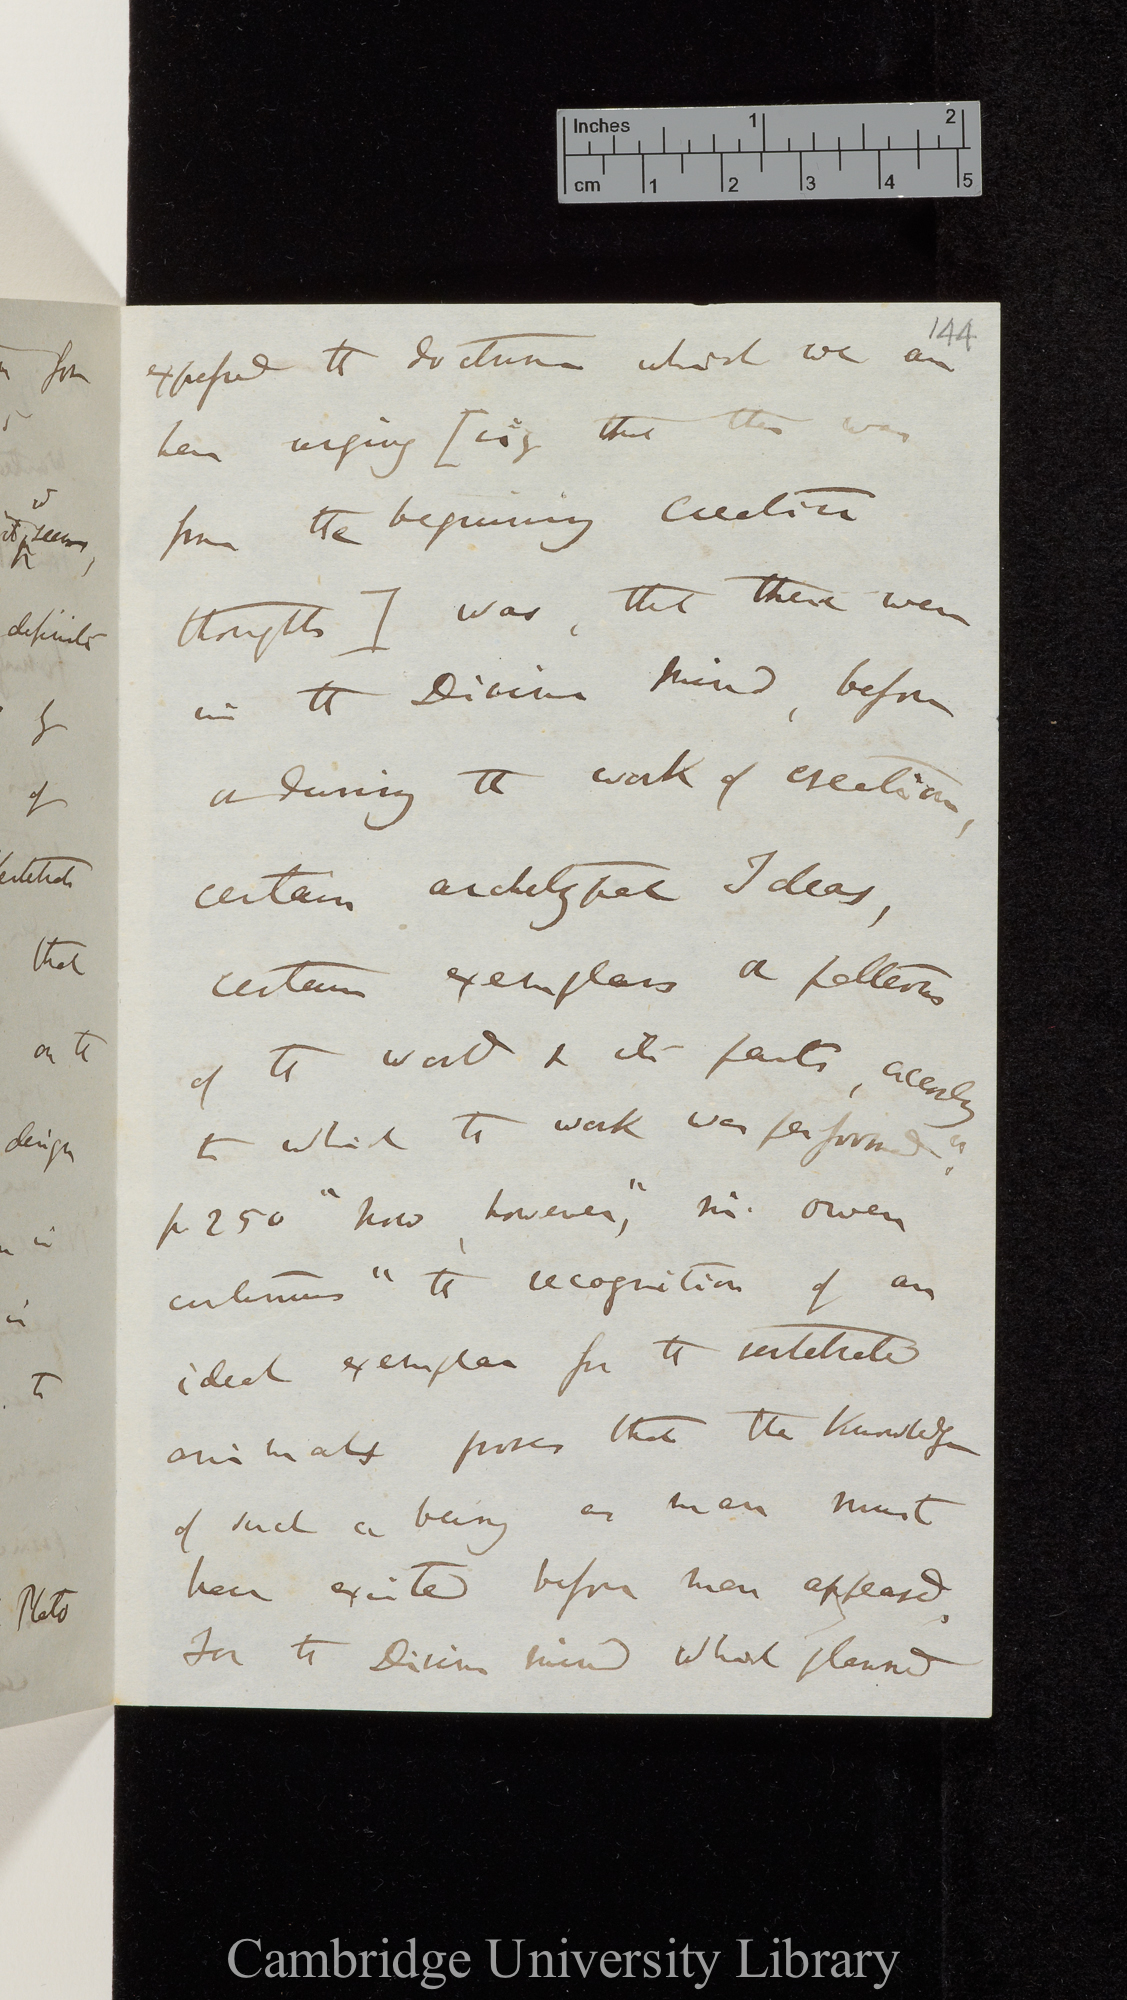 Inches 1 2
cm 1 2 3 4 5
144
expressed the doctrine which we are
here urging [viz that this was
from the beginning creative
thoughts] was, that there were
in the Divine Mind, before
or during the work of creation,
certain archetypal Ideas,
certain exemplars or patterns
of the world & its parts, accordg
to which the work was performed".
p 250 "Now, however," Mr. Owen
continues "the recognition of an
ideal exemplar for the vertebrated
animals proves that the knowledge
of such a being as man must
have existed before man appeared.
For the Divine mind which planned
from
it seems,
definite
by
of
Vertebrate
that
on the
design
in
in
to
Plato
Cambridge University Library